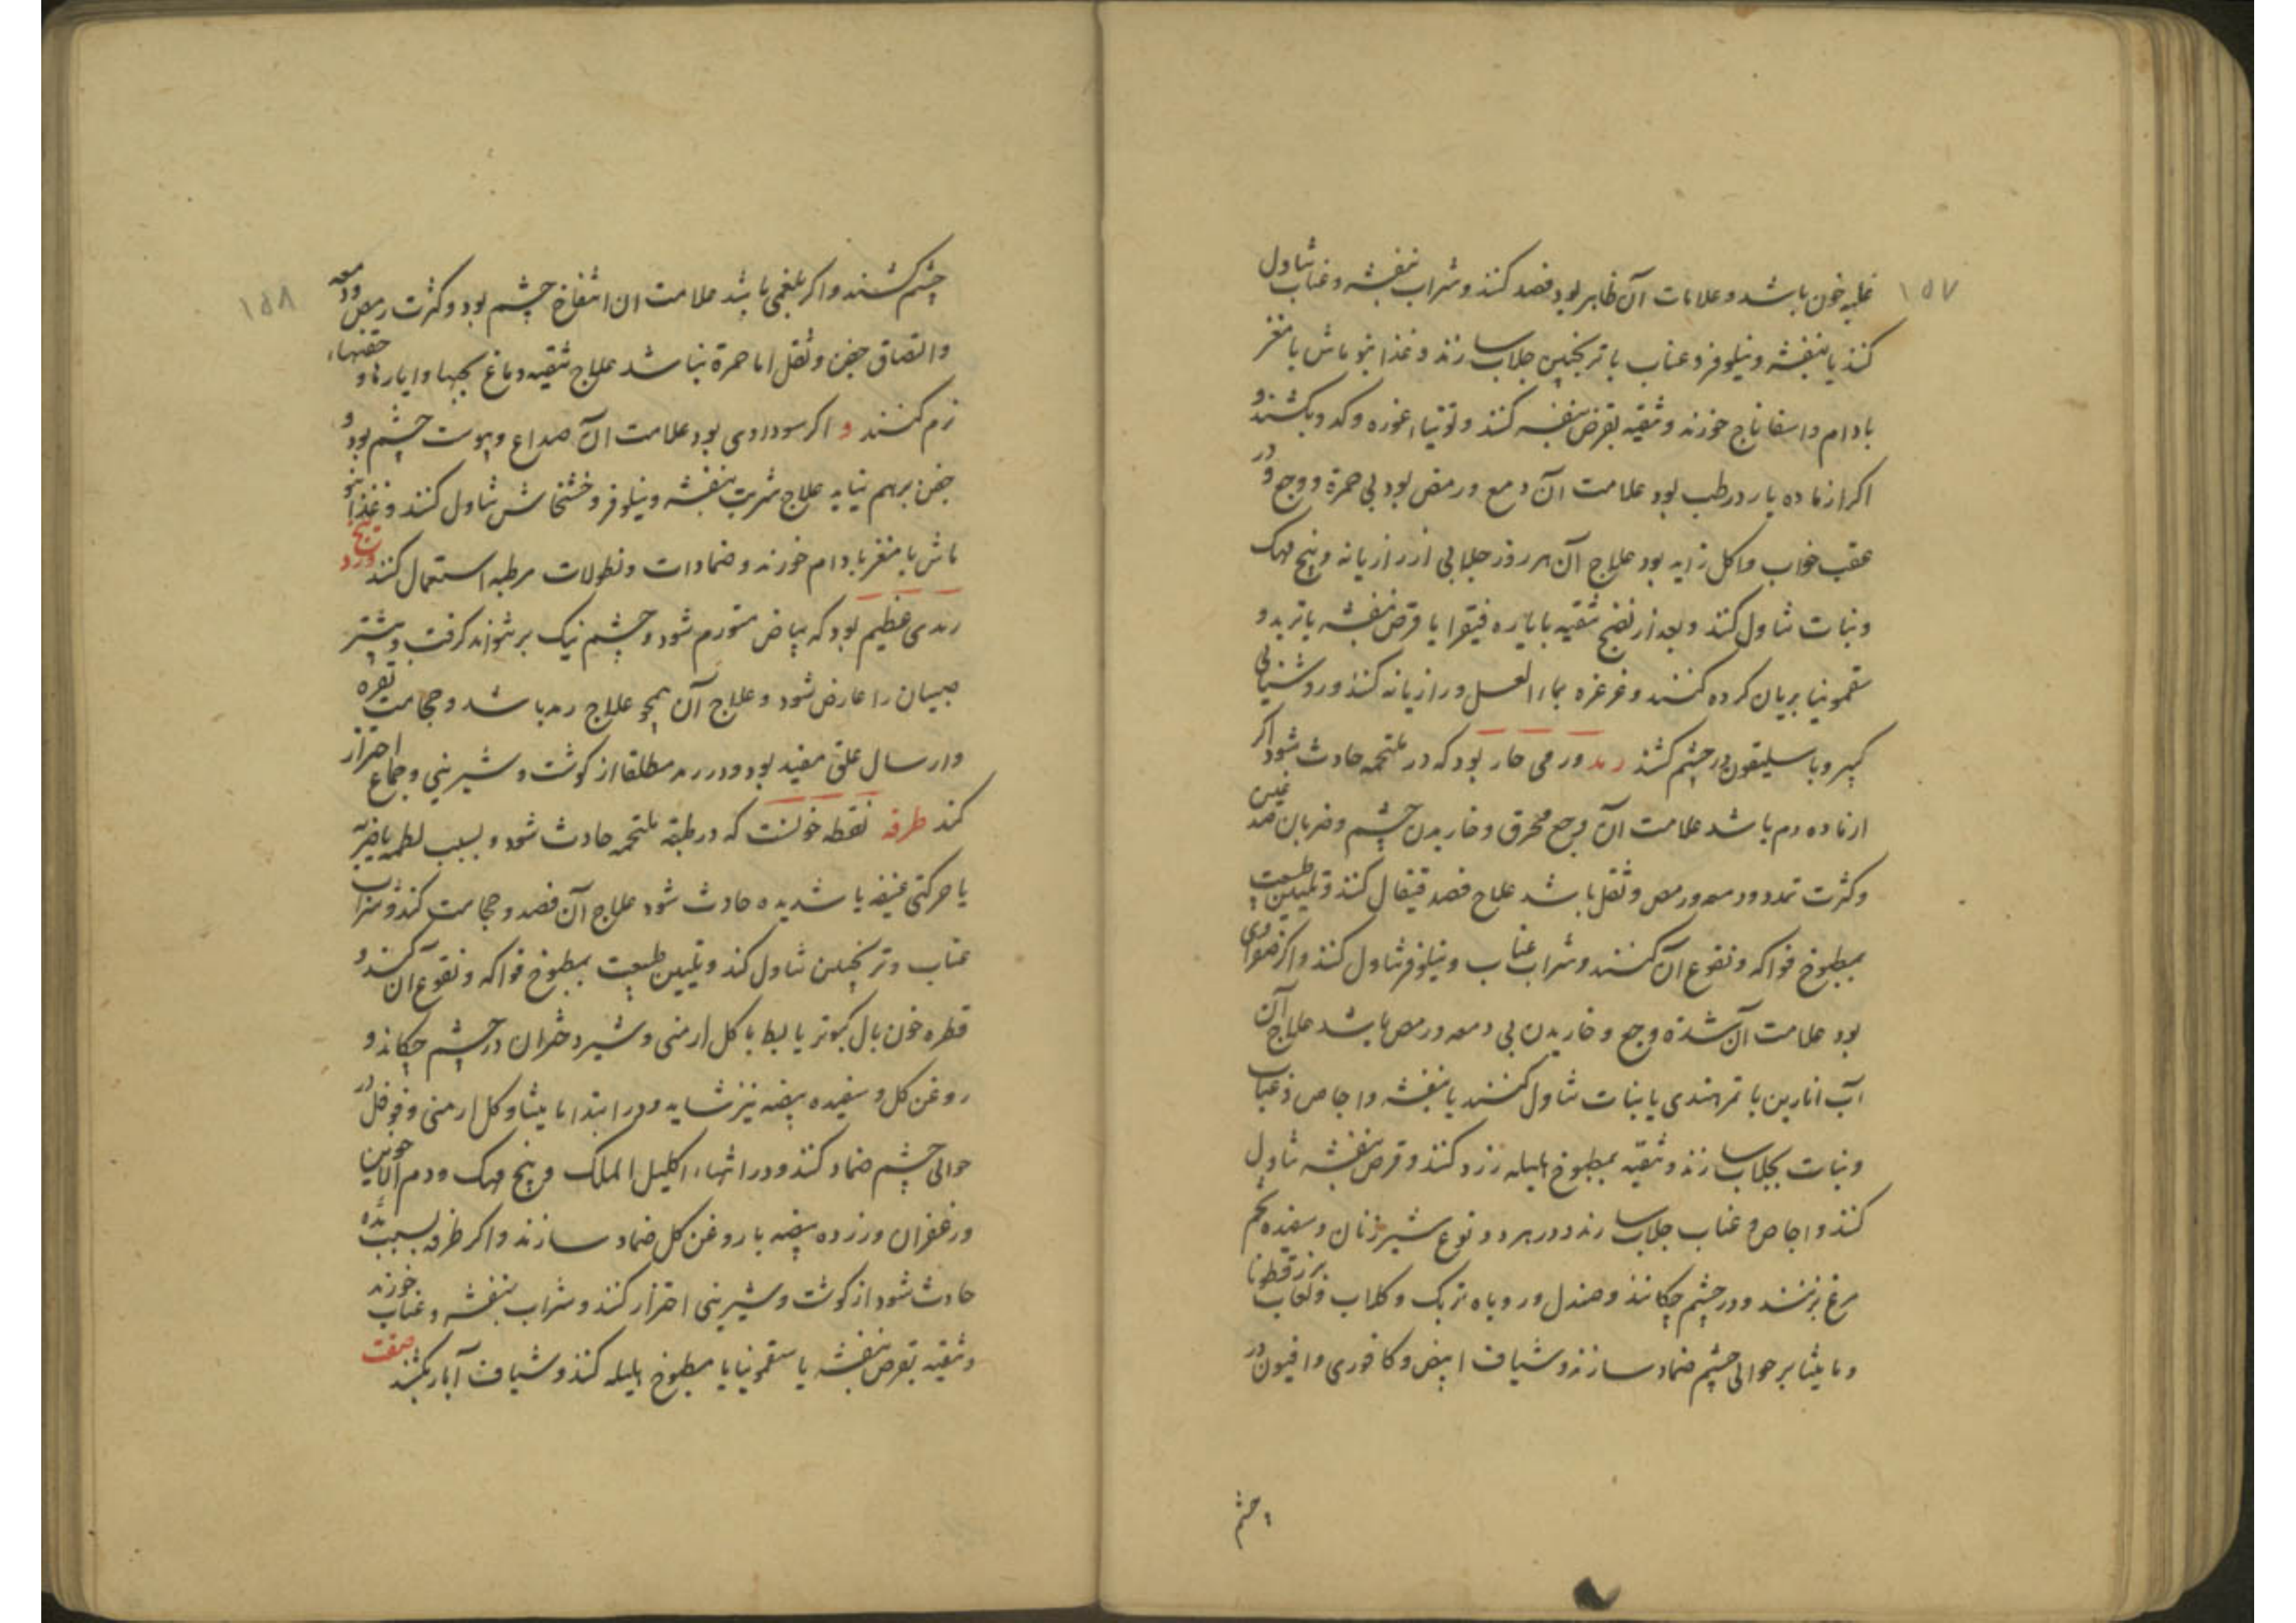 ۱۵۷
غلبه خون باشد و علامات آن ظاهر بود فصد کنند و شراب بنفشه و عناب تناول
کنند یا بنفشه و نیلوفر و عناب با ترنجبین جلاب سازند و غذا بنو ماش با مغز
بادام و اسفاناج خورند و تنقیه بقرص بنفشه کنند و توتیاء غوره و کدو بکشند و
اکر از ماده بارد رطب بود علامت آن دمع و رمص بود بی حمرة و وجع و در
عقب خواب و اکل زاید بود علاج آن هر روز جلابی از رازیانه و بیخ مهک
و نبات تناول کنند و بعد از نضج تنقیه بایاره فیقرا یا قرص بنفشه با تربد و
سقمونیا بریان کرده کنند و غرغره بماء العسل و رازیانه کنند و روشنایی
کبیر و باسلیقون در چشم کشند رمد ورمی حار بود که در ملتحمه حادث شود اکر
از ماده دم باشد علامت آن وجع محرق و خاریدن چشم و ضربان صدغین
و کثرت تمدد و دمعه و رمص و ثقل باشد علاج فصد قیفال کنند و تلیین طبیعت
بمطبوخ فواکه و نقوع آن کنند و شراب عناب و نیلوفر تناول کنند و اکر صفراوی
بود علامت آن شدة وجع و خاریدن بی دمعه و رمص باشد علاج آن
آب انارین با تمر هندی یا نبات تناول کنند یا بنفشه و اجاص و عناب
و نبات بجلاب سازند و تنقیه بمطبوخ هلیله زرد کنند و قرص بنفشه تناول
کنند و اجاص و عناب جلاب سازند و در هر دو نوع شیر زنان و سفیده تخم
مرغ بزنند و در چشم چکانند و صندل و روباه تربک و کلاب و لعاب بزرقطونا
و مامیثا بر حوالی چشم ضماد سازند و شیاف ابیض و کافوری و افیون در
چشم
۱۵۸
چشم کشند و اکر بلغمی باشد علامت ان انتفاخ چشم بود و کثرت رمص و دمعه
و التصاق جفن و ثقل اما حمرة نباشد علاج تنقیه دماغ بحبها و ایارها و حقنهاء
نرم کنند و اکر سوداوی بود علامت آن صداع و یبوست چشم بود و
جفن برهم نیاید علاج شربت بنفشه و نیلوفر و خشخاش تناول کنند و غذا بنو
ماش با مغز بادام خورند و ضمادات و نطولات مرطبه استعمال کنند وردینج
رمدی عظیم بود که بیاض متورم شود و چشم نیک بر نتواند کرفت و بیشتر
صبیان را عارض شود و علاج آن همچو علاج رمد باشد و حجامت نقره
و ارسال علق مفید بود و در رمد مطلقا از کوشت و شیرینی و جماع احتراز
کنند طرفه نقطه خونست که در طبقه ملتحمه حادث شود و بسبب لطمه یا ضربه
یا حرکتی عنیفه یا شدیده حادث شود علاج آن فصد و حجامت کنند و شراب
عناب و ترنجبین تناول کنند و تلیین طبیعت بمطبوخ فواکه و نقوع آن کنند و
قطره خون بال کبوتر یا بط با کل ارمنی و شیر دختران در چشم چکانند و
روغن کل و سفیده بیضه نیز شاید و در ابتدا مامیثا و کل ارمنی و فوفل در
حوالی چشم ضماد کنند و در انتهاء اکلیل الملک و بیخ مهک و دم الاخوین
و زعفران و زرده بیضه با روغن کل ضماد سازند و اکر طرفه بسبب مده
حادث شود از کوشت و شیرینی احتراز کنند و شراب بنفشه و عناب خورند
و تنقیه بقرص بنفشه یا سقمونیا یا مطبوخ هلیله کنند و شیاف آبار بکشند صفت